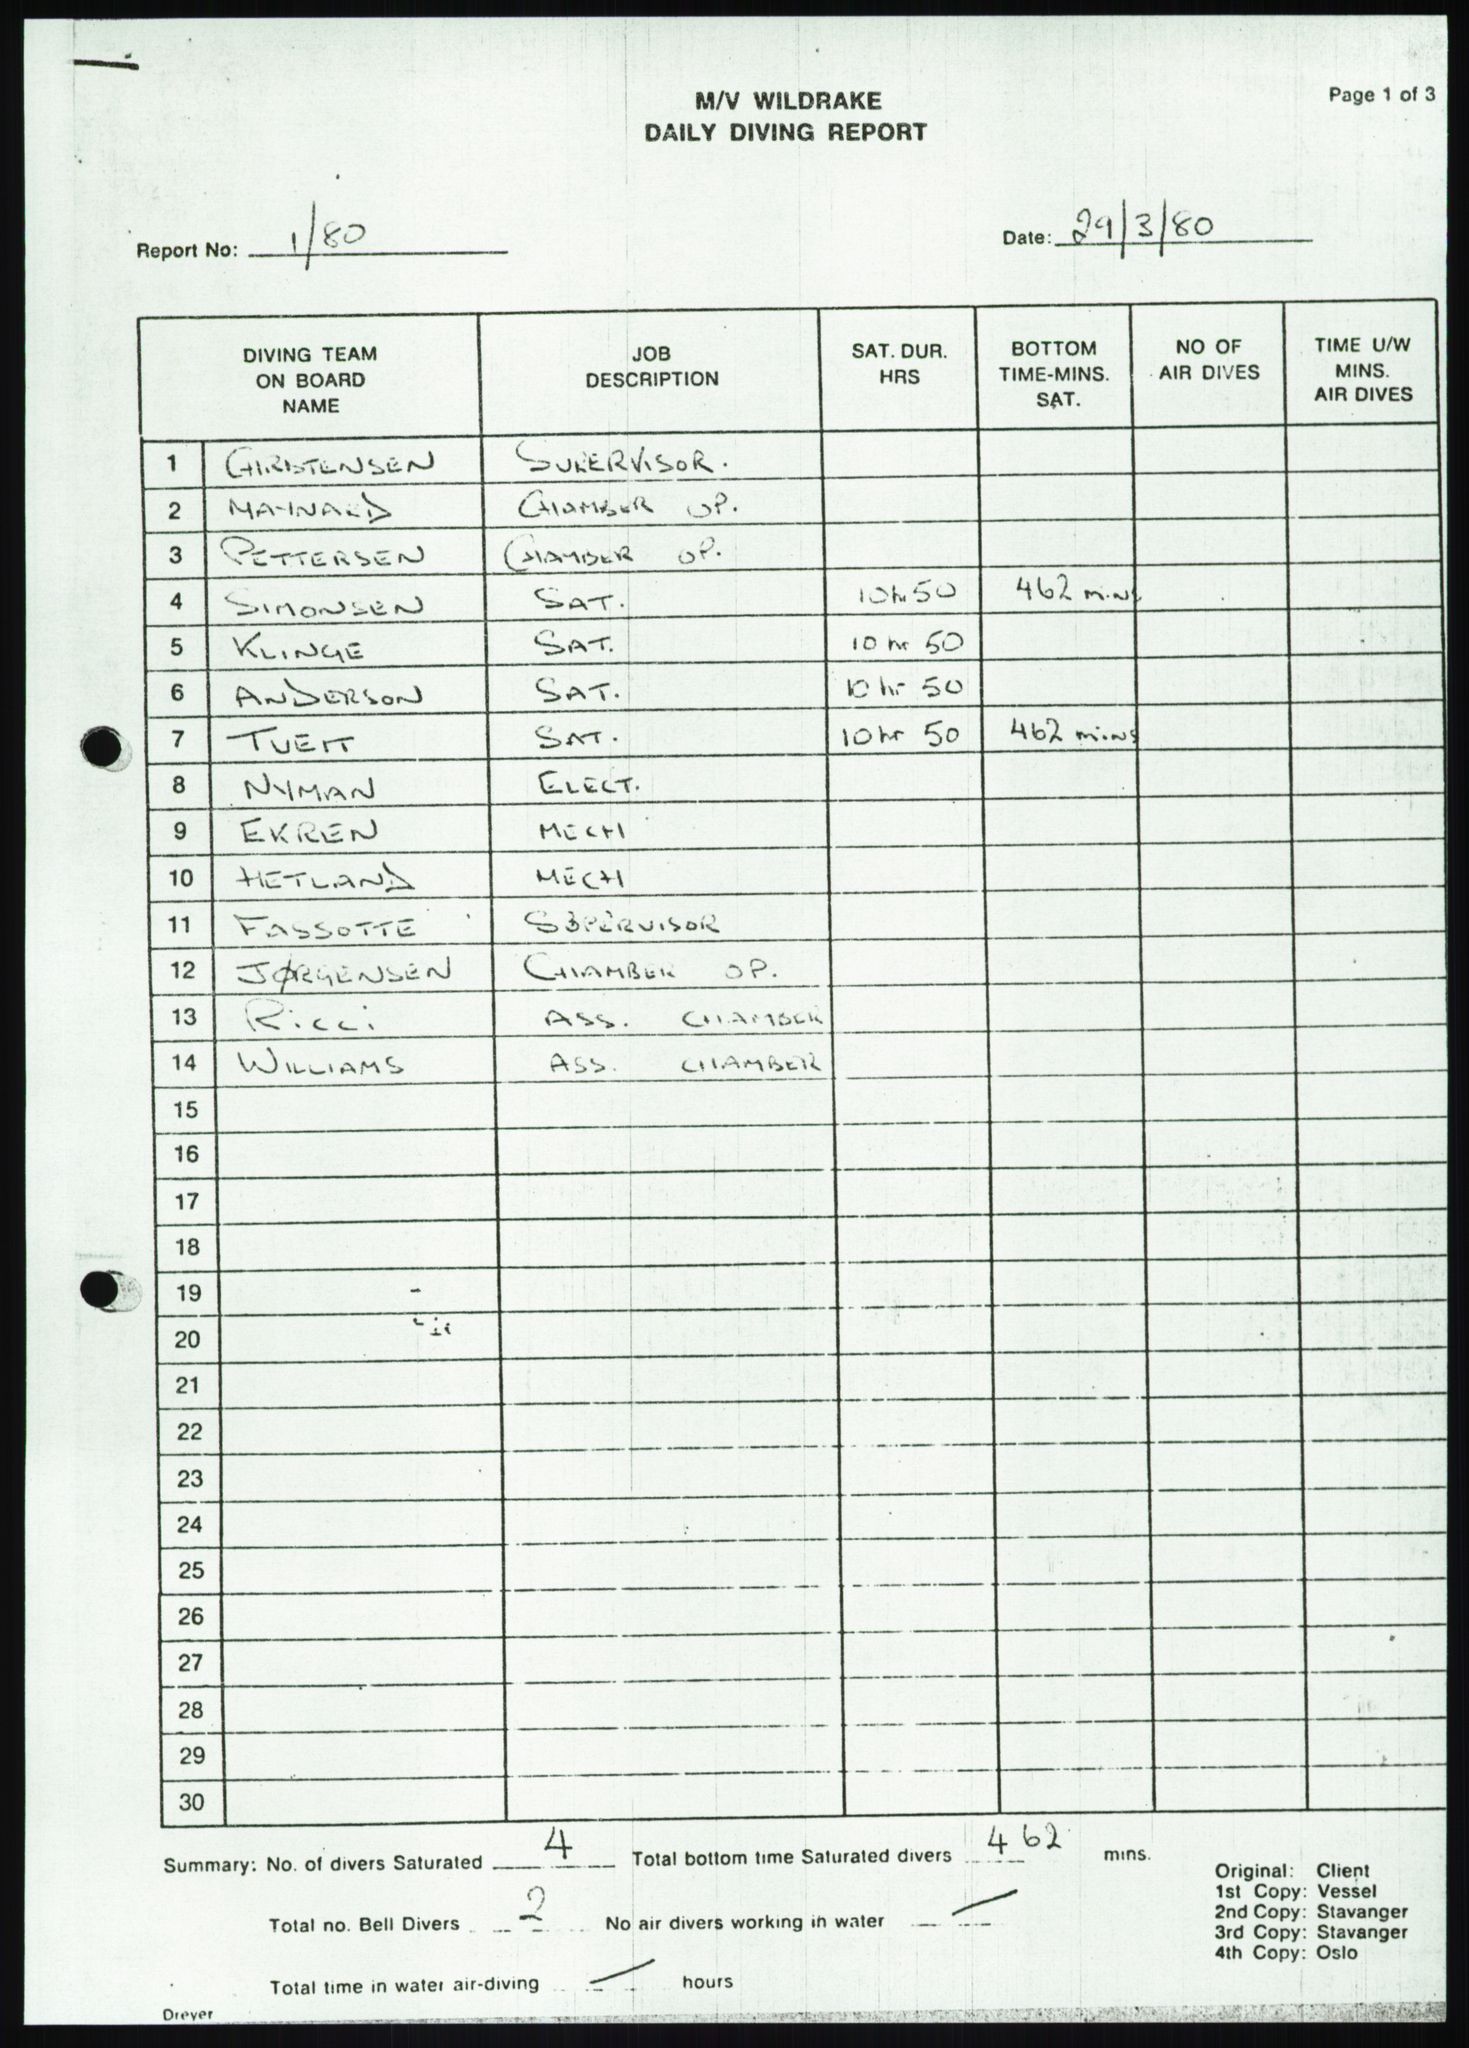 Page 1 of 3
M/V WILDRAKE
DAILY DIVING REPORT
Report No: 1/80
Date: 29/3/80
DIVING TEAM ON BOARD NAME | JOB DESCRIPTION | SAT. DUR. HRS | BOTTOM TIME-MINS. SAT. | NO OF AIR DIVES | TIME U/W MINS. AIR DIVES
1 CHRISTENSEN SUPERVISOR.
2 MAYNARD CHAMBER OP.
3 PETTERSEN CHAMBER OP.
4 SIMONSEN SAT. 10hr 50 462 mins
5 KLINGE SAT. 10 hr 50
6 ANDERSON SAT. 10 hr 50
7 TVEIT SAT. 10 hr 50 462 mins
8 NYMAN ELECT.
9 EKREN MECH
10 HETLAND MECH
11 FASSOTTE SUPERVISOR
12 JØRGENSEN CHAMBER OP.
13 RICCI ASS. CHAMBER
14 WILLIAMS ASS. CHAMBER
15
16
17
18
19
20
21
22
23
24
25
26
27
28
29
30
Summary: No. of divers Saturated 4 Total bottom time Saturated divers 462 mins.
Total no. Bell Divers 2 No air divers working in water —
Total time in water air-diving — hours
Original: Client
1st Copy: Vessel
2nd Copy: Stavanger
3rd Copy: Stavanger
4th Copy: Oslo
Dreyer